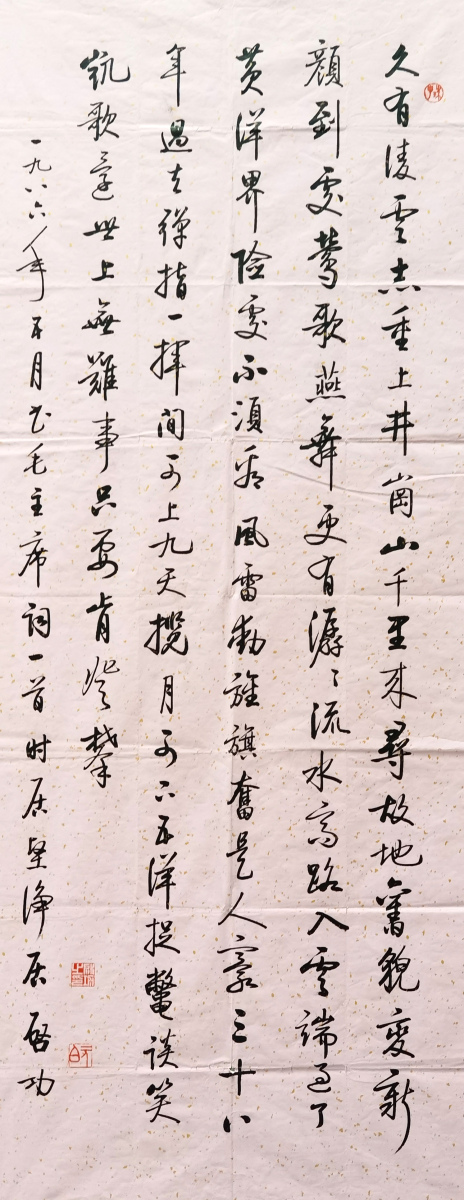 久有凌雲志重上井崗山千里来尋故地舊貌變新
顔到處鶯歌燕舞更有潺〻流水高路入雲端過了
黄洋界險處不須看風雷動旌旗奮是人寰三十八
年過去彈指一揮間可上九天攬月可下五洋捉鱉談笑
凱歌還世上無難事只要肯登攀
一九八六年五月书毛主席词一首时居坚净居启功